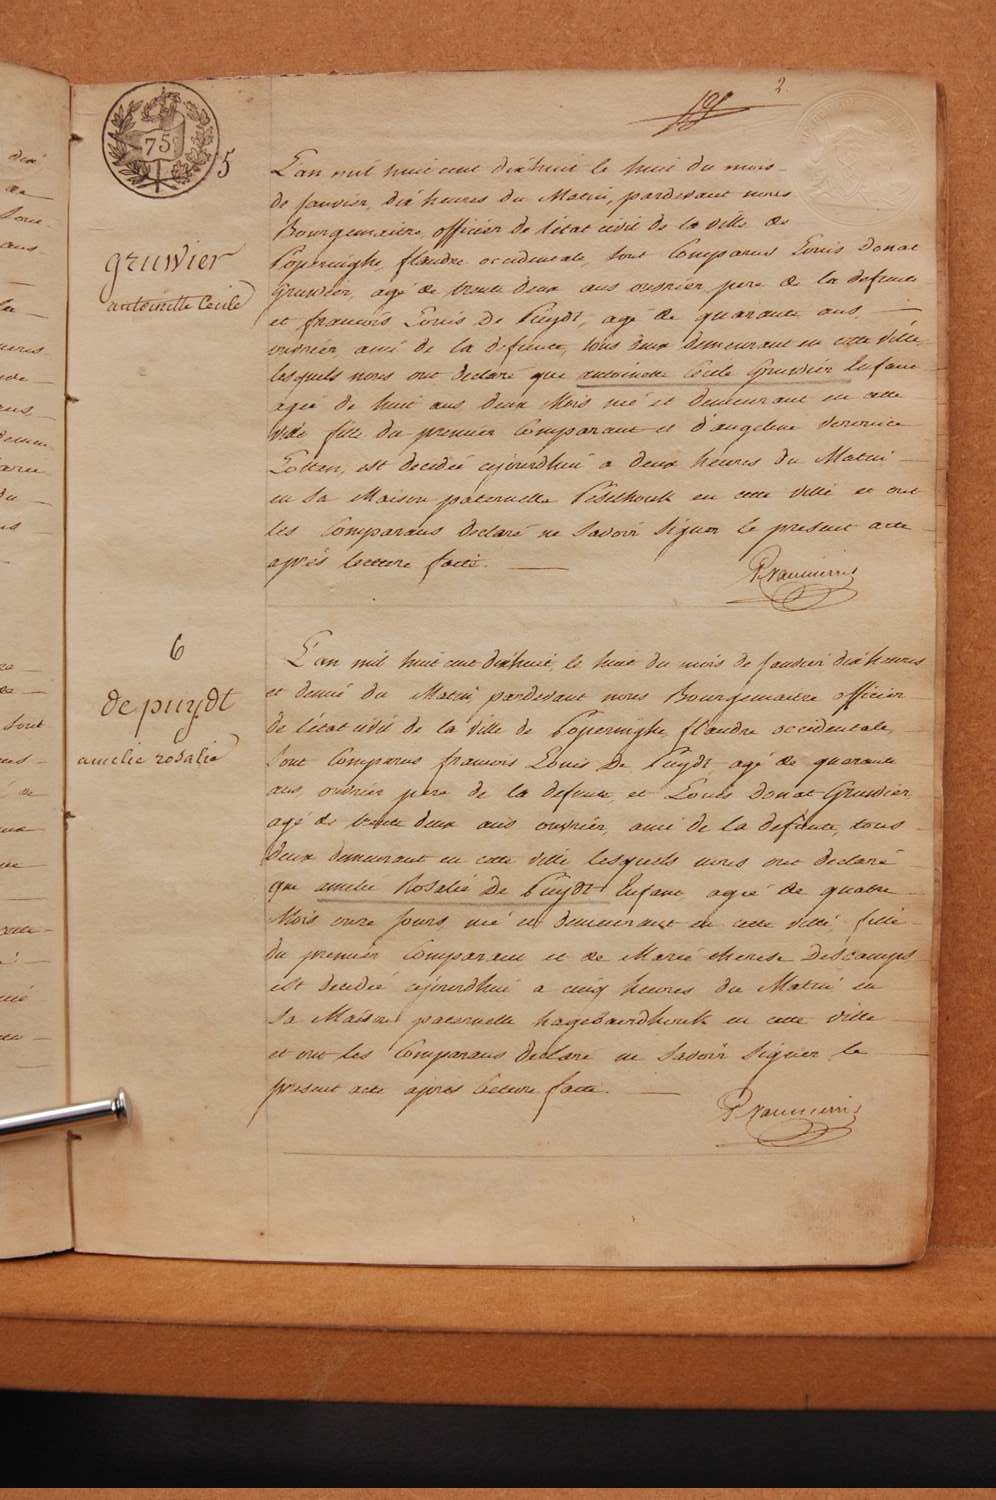 2
75
5
gruwier
antoinette Cecile
L'an mil huit cent dixhuit le huit du mois
de janvier, dix heures du Matin, pardevant nous
Bourgemaitre officier de l'état civil de la ville de
Poperinghe, flandre occidentale, sont Comparus Louis Donat
Gruwier, agé de trente deux ans ouvrier, pere de la defunte
et francois Louis De Puydt, agé de quarante ans,
ouvrier, ami de la defunte, tous deux demeurant en cette ville
lesquels nous ont declaré que antoinette Cecile Gruwier Enfant
agée de huit ans deux Mois né et demeurant en cette
ville fille du premier Comparant et d'angeline veronica
est decedée cejourdhui a deux heures du Matin
en sa Maison paternelle en cette ville et ont
les Comparans declaré ne savoir signer le present acte
après lecture faite.
6
de puydt
amelie rosalie
L'an mil huit cent dixhuit, le huit du mois de janvier dix heures
et demie du Matin pardevant nous Bourgemaitre officier
de l'état civil de la ville de Poperinghe flandre occidentale,
sont Comparus francois Louis De Puydt agé de quarante
ans, ouvrier pere de la defunte, et Louis Donat Gruwier
agé de trente deux ans ouvrier, ami de la defunte, tous
deux demeurant en cette ville lesquels nous ont declaré
que amelie Rosalie De Puydt Enfant agée de quatre
Mois onze jours, né et demeurant en cette ville, fille
du premier Comparant et de Marie therese Descamps
est decedée cejourdhui a cinq heures du Matin en
sa Maison paternelle en cette ville
et ont les Comparans declaré ne savoir signer le
present acte après lecture faite.